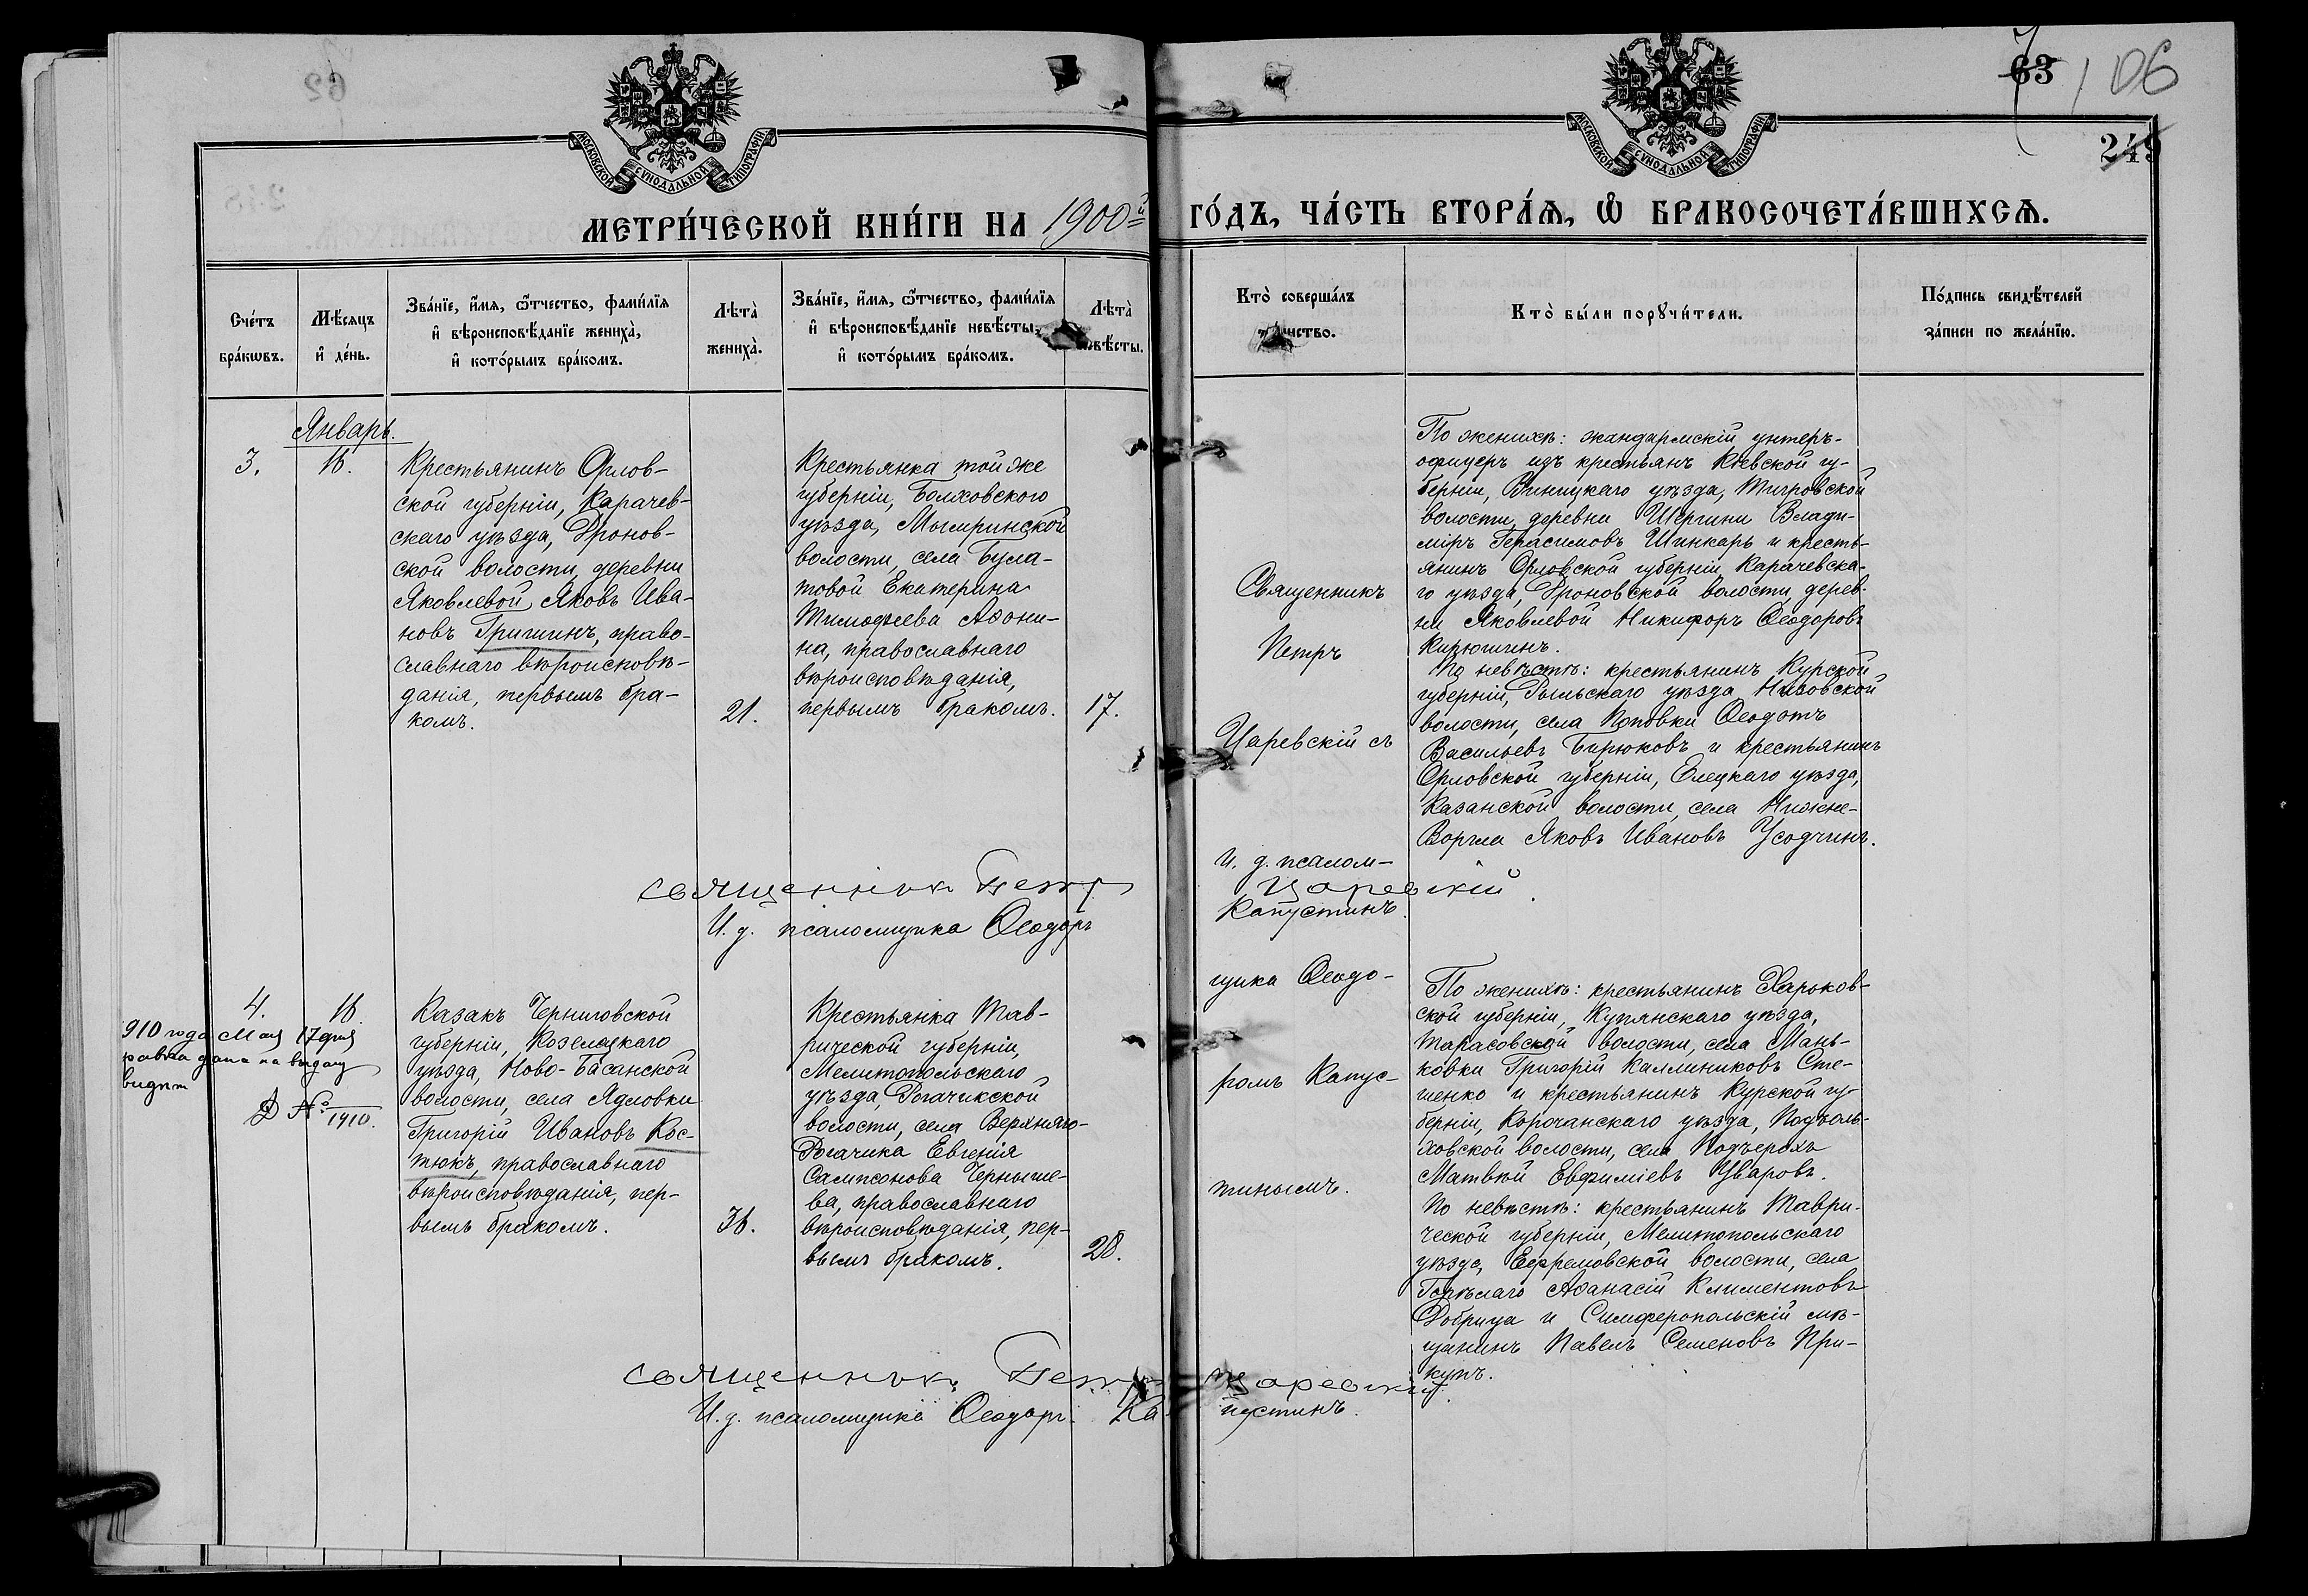 63 106
249
МОСКОВСКОЙ СѴНОДАЛЬНОЙ ТИПОГРАФІИ
МОСКОВСКОЙ СѴНОДАЛЬНОЙ ТИПОГРАФІИ
МЕТРИ́ЧЕСКОЙ КНИ́ГИ НА 1900й ГО́ДЪ, ЧА́СТЬ ВТОРА́Ѧ, Ѽ БРАКОСОЧЕТА́ВШИХСѦ.
Сче́тъ
бра́кѡвъ.
Мѣ́сяцъ
и҆ де́нь.
Зва́нїе, и҆́мя, ѻ҆́тчество, фами́лїя
и҆ вѣроисповѣ́данїе жениха̀,
и҆ кото́рымъ бра́комъ.
Лѣта̀
жениха̀.
Зва́нїе, и҆́мя, ѻ҆́тчество, фами́лїя
и҆ вѣроисповѣ́данїе невѣ́сты,
и҆ кото́рымъ бра́комъ.
Лѣта̀
невѣ́сты.
Кто̀ соверша́лъ
таинство.
Кто̀ бы́ли порꙋчи́тели.
По́дпись свидѣ́телей
за́писи по жела́нїю.
Январь.
3.
18.
Крестьянинъ Орлов-
ской губерніи, Карачев-
скаго уѣзда, Дронов-
ской волости, деревни
Яковлевой, Яковъ Ива-
новъ Гришинъ, право-
славнаго вѣроисповѣ-
данія, первымъ бра-
комъ.
21.
Крестьянка той же
губерніи, Болховского
уѣзда, Мымринской
волости, села Була-
товой Екатерина
Тимофеева Аѳони-
на, православнаго
вѣроисповѣданія,
первымъ бракомъ.
17.
Священникъ
Петръ
Царевскій съ
и. д. псалом-
щика Ѳеодо-
ромъ Капус-
тинымъ.
По женихѣ: жандармскій унтеръ-
офицеръ изъ крестьянъ Кіевской гу-
берніи, Виницкаго уѣзда, Тигровской
волости, деревни Шергини Влади-
міръ Герасимовъ Шинкарь и кресть-
янинъ Орловской губерніи Карачевска-
го уѣзда, Дроновской волости, дерев-
ни Яковлевой Никифоръ Ѳеодоровъ
Кирюшинъ.
По невѣстѣ: крестьянинъ Курской
губерніи, Рыльскаго уѣзда, Низовской
волости, села Поповки Ѳеодотъ
Васильевъ Бирюковъ и крестьянинъ
Орловской губерніи, Елецкаго уѣзда,
Казанской волости, села Нижне-
Воргла Яковъ Ивановъ Усодчинъ.
священникъ Петръ Царевскій.
И. д. псаломщика Ѳеодоръ Капустинъ.
4.
18.
910 года Мая 17 дня
равка дана на выдачу
видѣт
Д №
1910.
Казакъ Черниговской
губерніи, Козелецкаго
уѣзда, Ново-Басанской
волости, села Ядловки
Григорій Ивановъ Кос-
тюкъ, православнаго
вѣроисповѣданія, пер-
вымъ бракомъ.
36.
Крестьянка Тав-
рической губерніи,
Мелитопольскаго
уѣзда, Рогачикской
волости, села Верхняго-
Рогачика Евгенія
Сампсонова Черныше-
ва, православнаго
вѣроисповѣданія, пер-
вымъ бракомъ.
28.
По женихѣ: крестьянинъ Харьков-
ской губерніи, Купянскаго уѣзда,
Тарасовской волости, села Мань-
ковки Григорій Каллиниковъ Сте-
шенко и крестьянинъ Курской гу-
берніи, Корочанскаго уѣзда, Подъоль-
ховской волости, села Подъерохъ
Матвѣй Евфиміевъ Уваровъ.
По невѣстѣ: крестьянинъ Таври-
ческой губерніи, Мелитопольскаго
уѣзда, Ефремовской волости, села
Горѣлаго Аѳанасій Климентовъ
Добрица и Симферопольскій мѣ-
щанинъ Павелъ Семеновъ При-
купъ.
священникъ Петръ Царевскій.
И. д. псаломщика Ѳеодоръ Капустинъ.